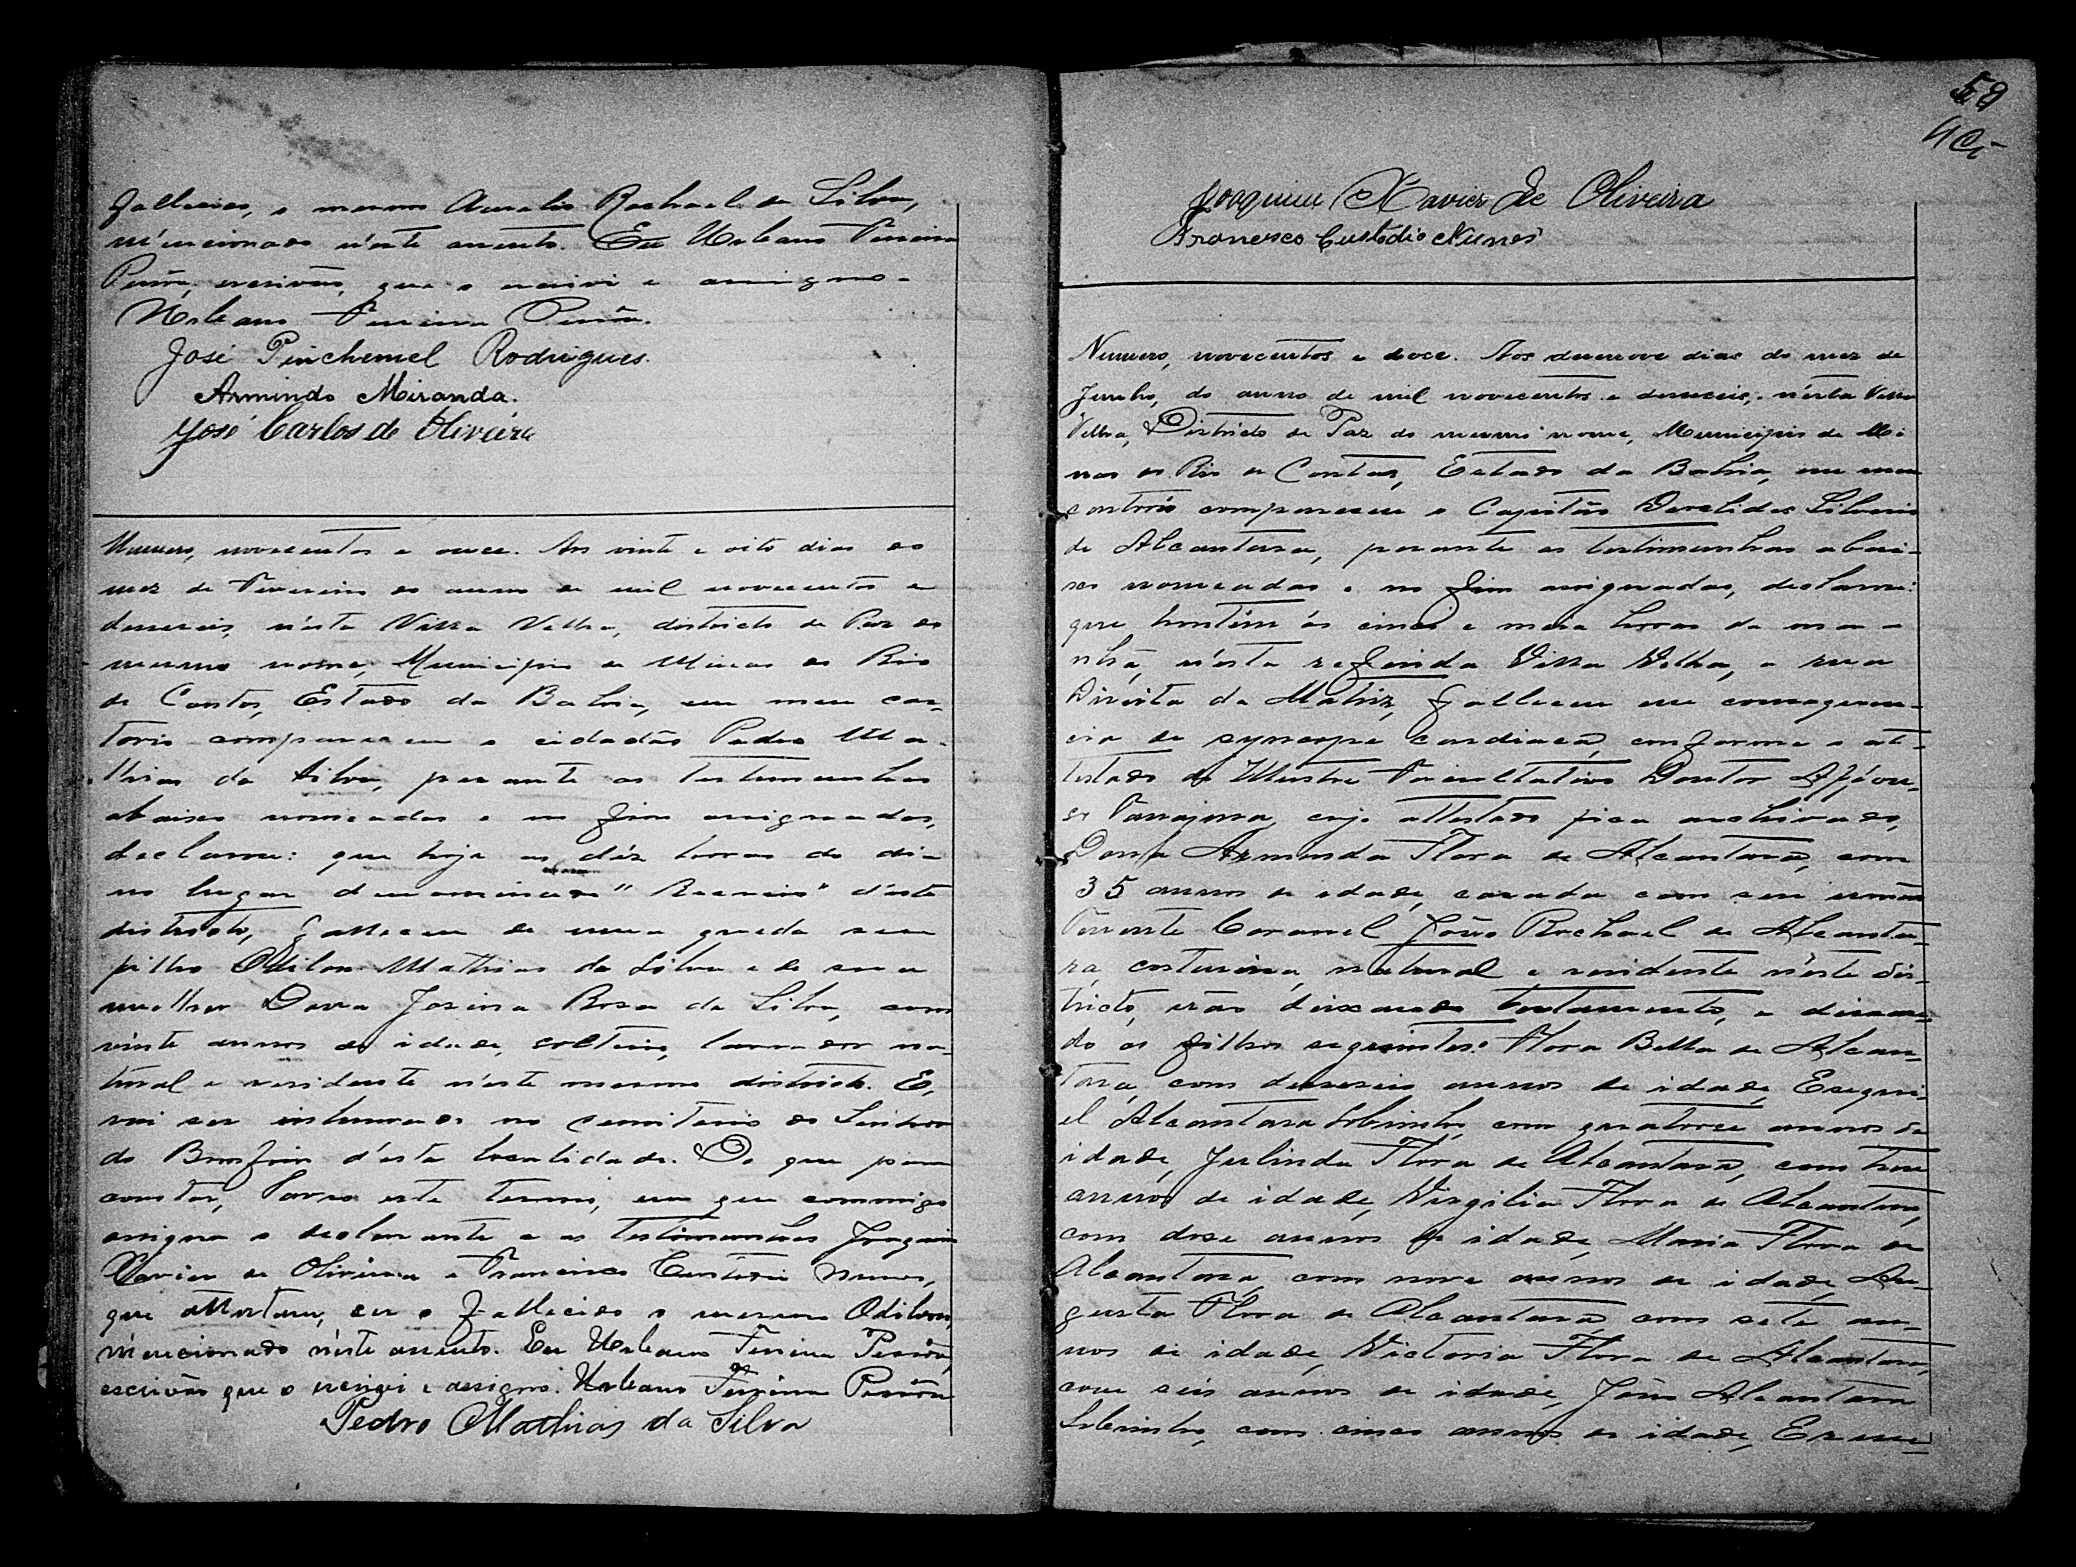 fallecido, o mesmo Aurelio Rachael da Silva,
mencionado n'este assento. Eu Urbano Ferreira
Pessôa, escrivão, que o escrivi e assigno.
Urbano Ferreira Pessôa.
José Pinchemel Rodrigues.
Armindo Miranda.
José Carlos de Oliveira
Numero, novecentos e onze. Aos vinte e oito dias do
mez de Fevereiro do anno de mil novecentos e
deseseis, n'esta Villa Velha, districto de Paz do
mesmo nome, Municipio de Minas do Rio
de Contas, Estado da Bahia, em meu car-
torio compareceu o cidadão Pedro Ma-
thias da Silva, perante as testemunhas
abaixo nomeadas e no fim assignadas,
declarou: que hoje as déz horas do dia
no lugar denominado " " d'este
districto, falleceu de uma queda seu
filho Odilon Mathias da Silva e de sua
mulher Dona Josina Rosa da Silva, com
vinte annos de idade, solteiro, lavrador na-
tural e residente n'este mesmo districto. E,
vai ser inhumado no cemiterio do Senhor
do Bomfim d'esta localidade. Do que para
constar, lavro este termo, em que commigo
assigna o declarante e as testemunhas Joaquim
Xavier de Oliveira e Francisco Custodio Nunes,
que attestam, ser o fallecido o mesmo Odilon,
mencionado n'este assento. Eu Urbano Ferreira Pessôa,
escrivão que o escrivi e assigno. Urbano Ferreira Pessôa
Pedro Mathias da Silva
58
Joaquim Xavier de Oliveira
Francisco Custodio Nunes
Numero, novecentos e doce. Aos desenove dias do mez de
Junho, do anno de mil novecentos e deseseis, n'esta Villa
Velha, Districto de Paz do mesmo nome, Municipio de Mi
nas do Rio de Contas, Estado da Bahia, em meu
cartorio compareceu o Capitão Silverio
de Alcantara, perante as testimunhas abai-
xo nomeadas e no fim assignadas, declarou:
que hontem ás cinco e meia horas da ma-
nhã, n'esta referida Villa Velha, a rua
Direita da Matriz, falleceu em consequen-
cia de syncope cardiaca, conforme o at-
testado do Illustre Facultativo Doutor
cujo attestado fica archivado,
Dona Armanda Flora de Alcantara, com
35 annos de idade, casada com seu irmão
Tenente Coronel João Rachael de Alcanta-
ra, costureira, natural e residente n'este dis-
tricto, não deixando testamento, e deixan-
do os filhos seguintes: Flora Bella de Alcan-
tara, com deseseis annos de idade, Esequi-
el Alcantara Sobrinho, com quatorze annos de
idade, Julinda Flora de Alcantara, com treze
annos de idade, Virgilia Flora de Alcantara,
com dose annos de idade, Maria Flora de
Alcantara, com nove annos de idade, Au-
gusta Flora de Alcantara com sete an-
nos de idade, Victoria Flora de Alcantara,
com seis annos de idade, João Alcantara
Sobrinho, com cinco annos de idade,